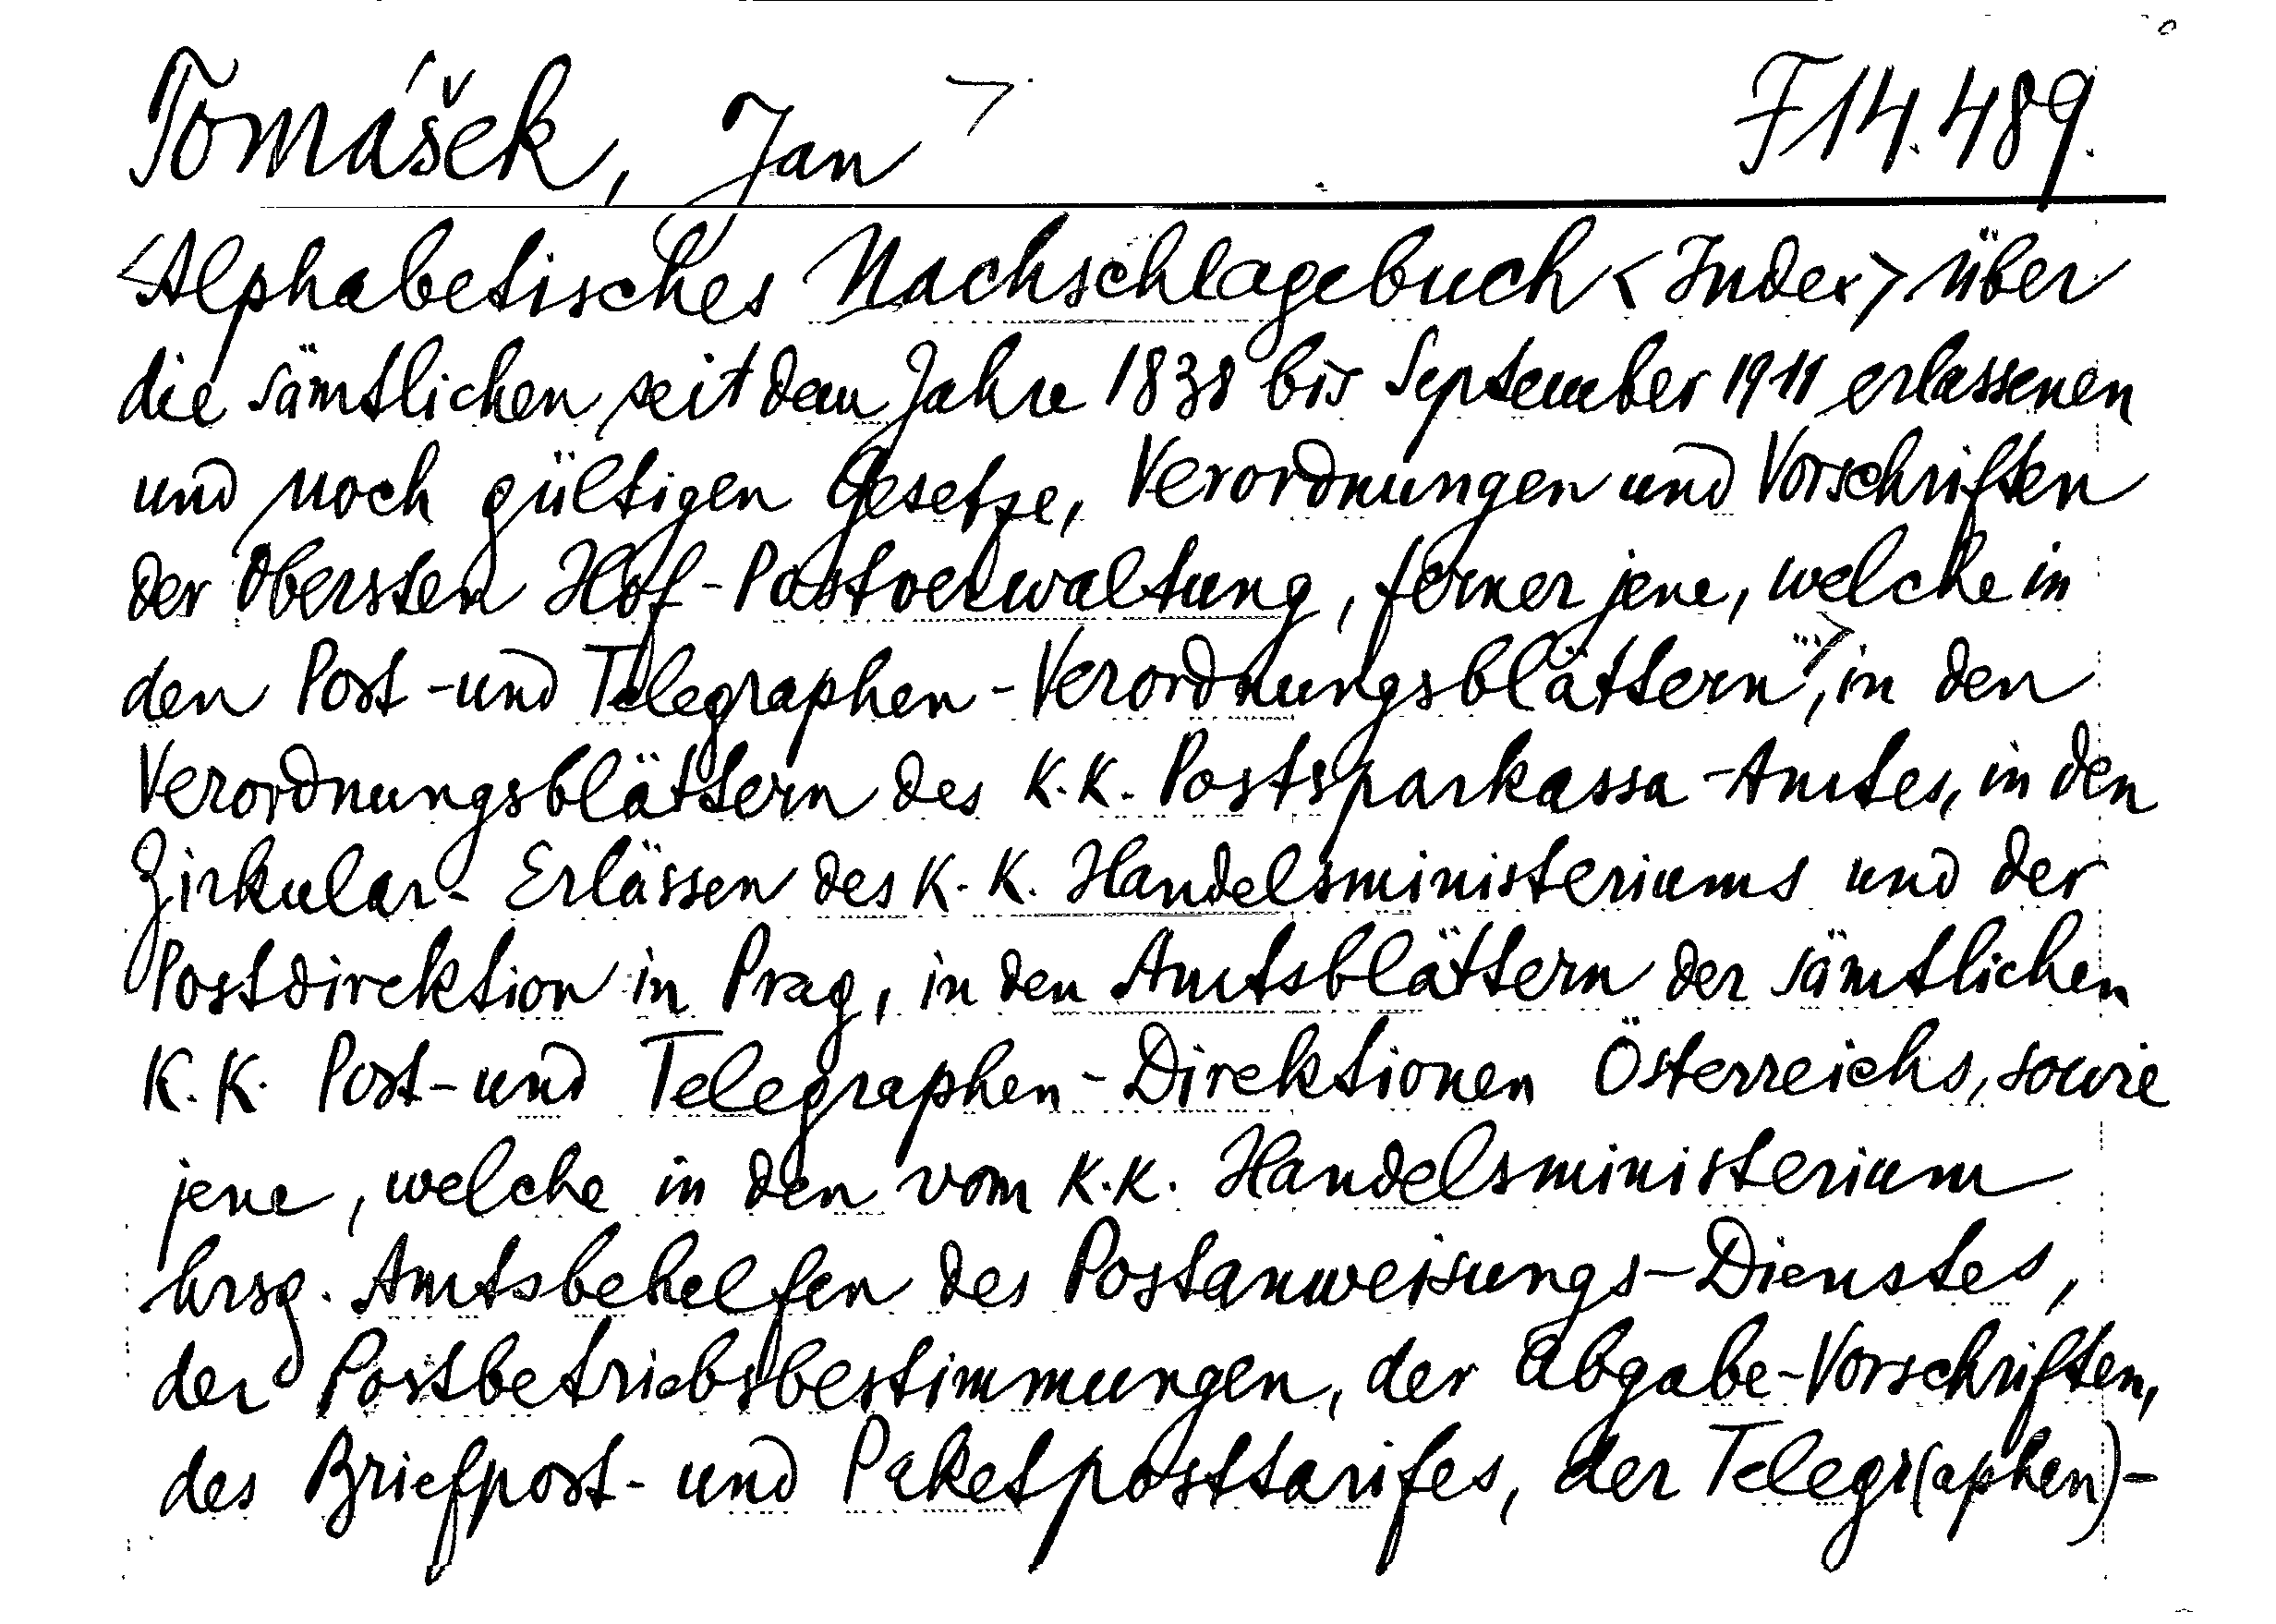 Tomášek, Jan> F14.489.
<Alphabetisches Nachschlagebuch <Index> über
die sämtlichen seit dem Jahre 1838 bis September 1911 erlassenen
und noch gültigen Gesetze, Verordnungen und Vorschriften
der Obersten Hof-Postverwaltung, ferner jene, welche in
den Post-und Telegraphen-Verordnungsblättern">, in den
Verordnungsblättern des K.K. Postsparkassa-Amtes, in den
Zirkular-Erlässen des K.K. Handelsministeriums und der
Postdirektion in Prag, in den Amtsblättern der sämtlichen
K.K. Post-und Telegraphen-Direktionen Österreichs, sowie
jene, welche in den vom K.K. Handelsministerium
hrsg. Amtsbehelfen des Postanweisungs-Dienstes,
der Postbetriebsbestimmungen, der Abgabe-Vorschriften,
des Briefpost- und Paketposttarifes, der Telegr(aphen)-